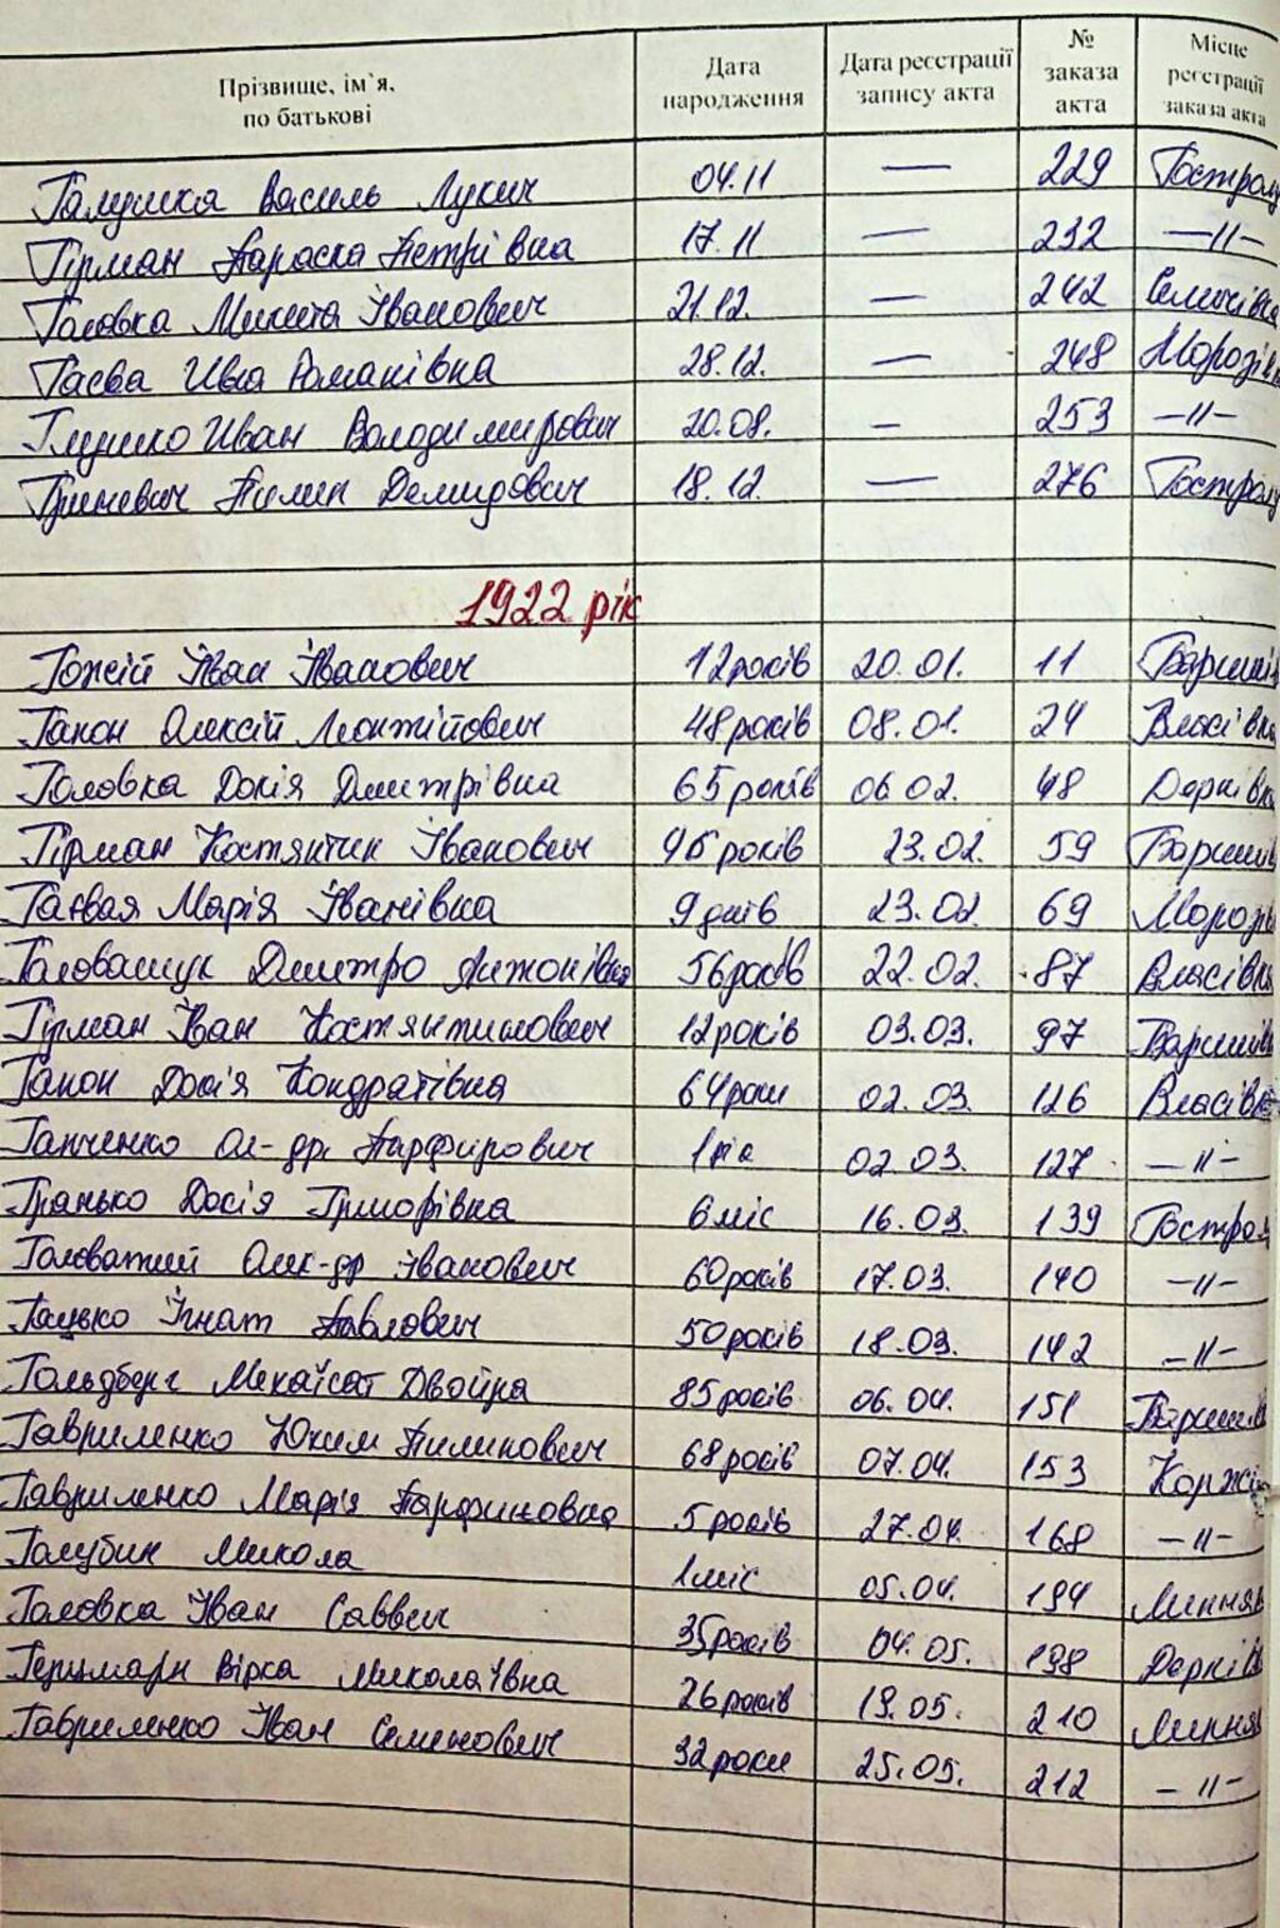 Прізвище, ім`я, по батькові Дата народження Дата реєстрації запису акта № заказа акта Місце реєстрації заказа акта
Галушка Василь Лукич 04.11 — 229 Гостролу
Гірман Параска Петрівна 17.11 — 232 —||—
Головка Микита Іванович 21.12. — 242 Семенівка
Гаєва Ивга Романівна 28.12. — 248 Морозівк
Глушко Иван Володимирович 20.08. — 253 —||—
Гриневич Пилип Демидович 18.12. — 276 Гостролу
1922 рік
Гожій Іван Іванович 12 років 20.01. 11
Гапон Олексій Леонтійович 48 років 08.01. 24 Власівка
Головка Докія Дмитрівна 65 років 06.02. 48 Дерківка
Гірман Костянтин Іванович 46 років 23.02. 59
Гаєвая Марія Іванівна 9 днів 23.02. 69 Морозів
Головащук Дмитро Антонівна 56 років 22.02. 87 Власівка
Гірман Іван Костянтинович 12 років 03.03. 97
Гапон Досія Кондратівна 64 роки 02.03. 126 Власівк
Гапченко Ол-др Парфирович 1 рік 02.03. 127 —||—
Гранько Досія 6 міс 16.03. 139 Гострол
Головатий Олек-др Іванович 60 років 17.03. 140 —||—
Гацько Ігнат Павлович 50 років 18.03. 142 —||—
Гольдберг Двойра 85 років 06.04. 151
Гавриленко Юхим Пилипович 68 років 07.04. 153 Коржі
Гавриленко Марія Парфиновна 5 років 27.04. 168 —||—
Голубин Микола 1 міс 05.04. 194 Липняк
Головка Іван Саввич 35 років 04.05. 198 Дерків
Вірка Миколаївна 26 років 19.05. 210 Липняк
Гавриленко Іван Семенович 32 роки 25.05. 212 —||—